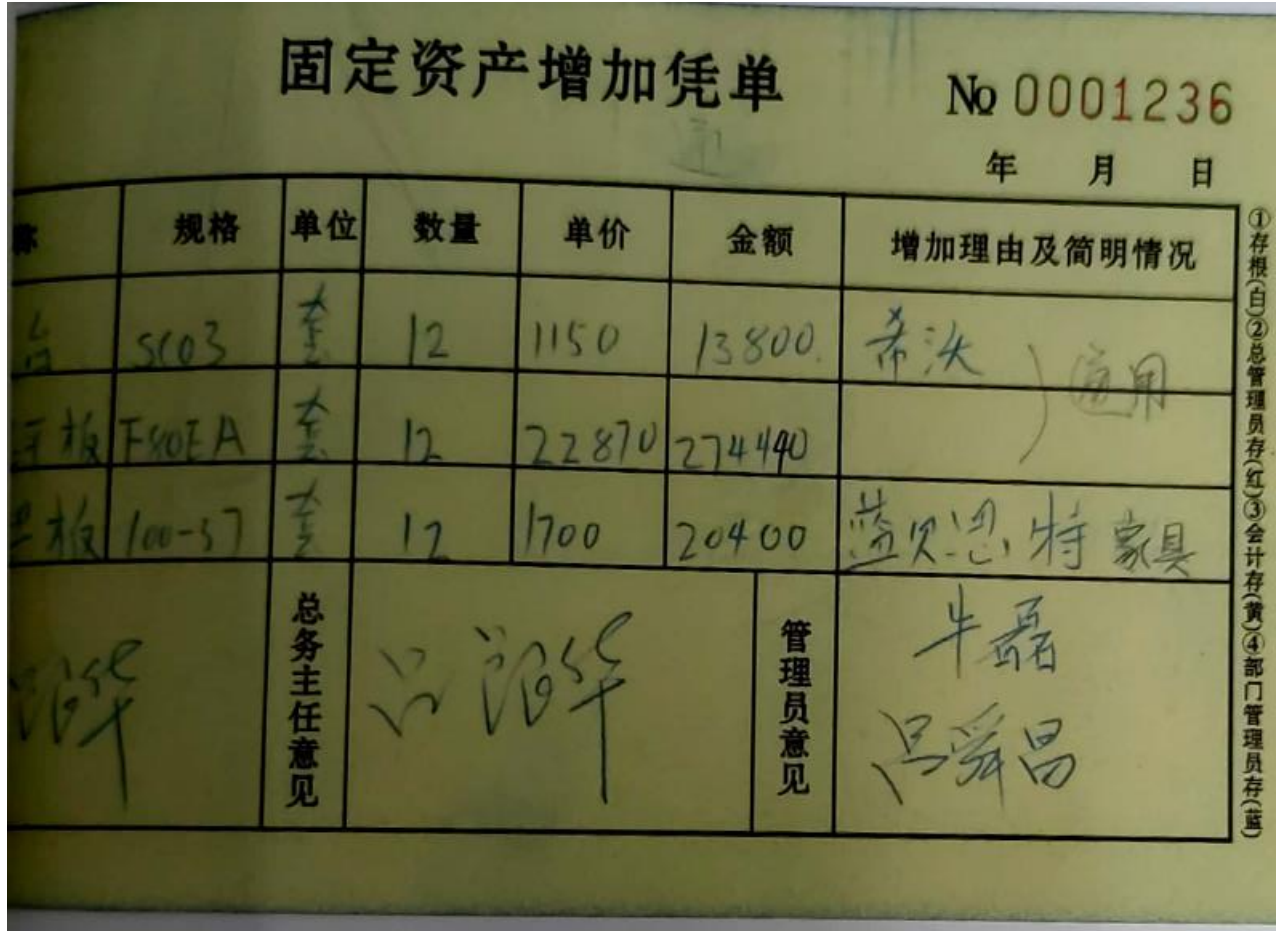 固定资产增加凭单
No 0001236
年 月 日
称 规格 单位 数量 单价 金额 增加理由及简明情况
台 SC03 套 12 1150 13800 希沃
板 F80EA 套 12 22870 274440 通用
板 100-57 套 12 1700 20400 蓝贝思特家具
总务主任意见 吕 管理员意见 牛磊
吕舜昌
①存根(白)②总管理员存(红)③会计存(黄)④部门管理员存(蓝)